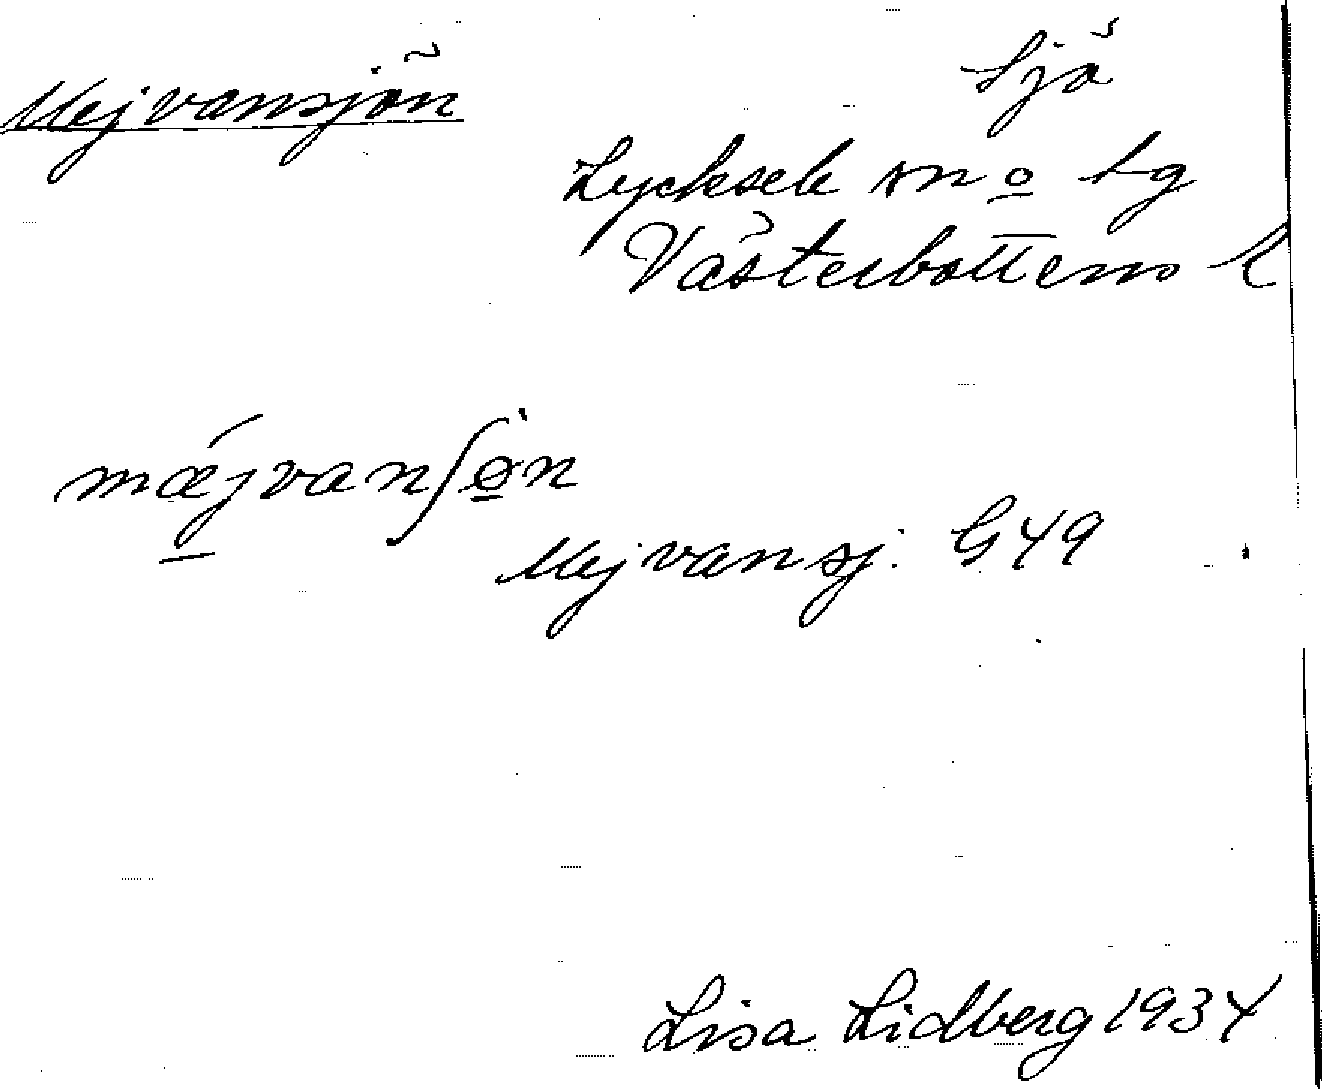 Mejvansjön
Sjö
Lycksele sn o lg
Västerbottens l
mǽjvanʃøn
Mejvansj. G49
Lisa Lidberg 1934